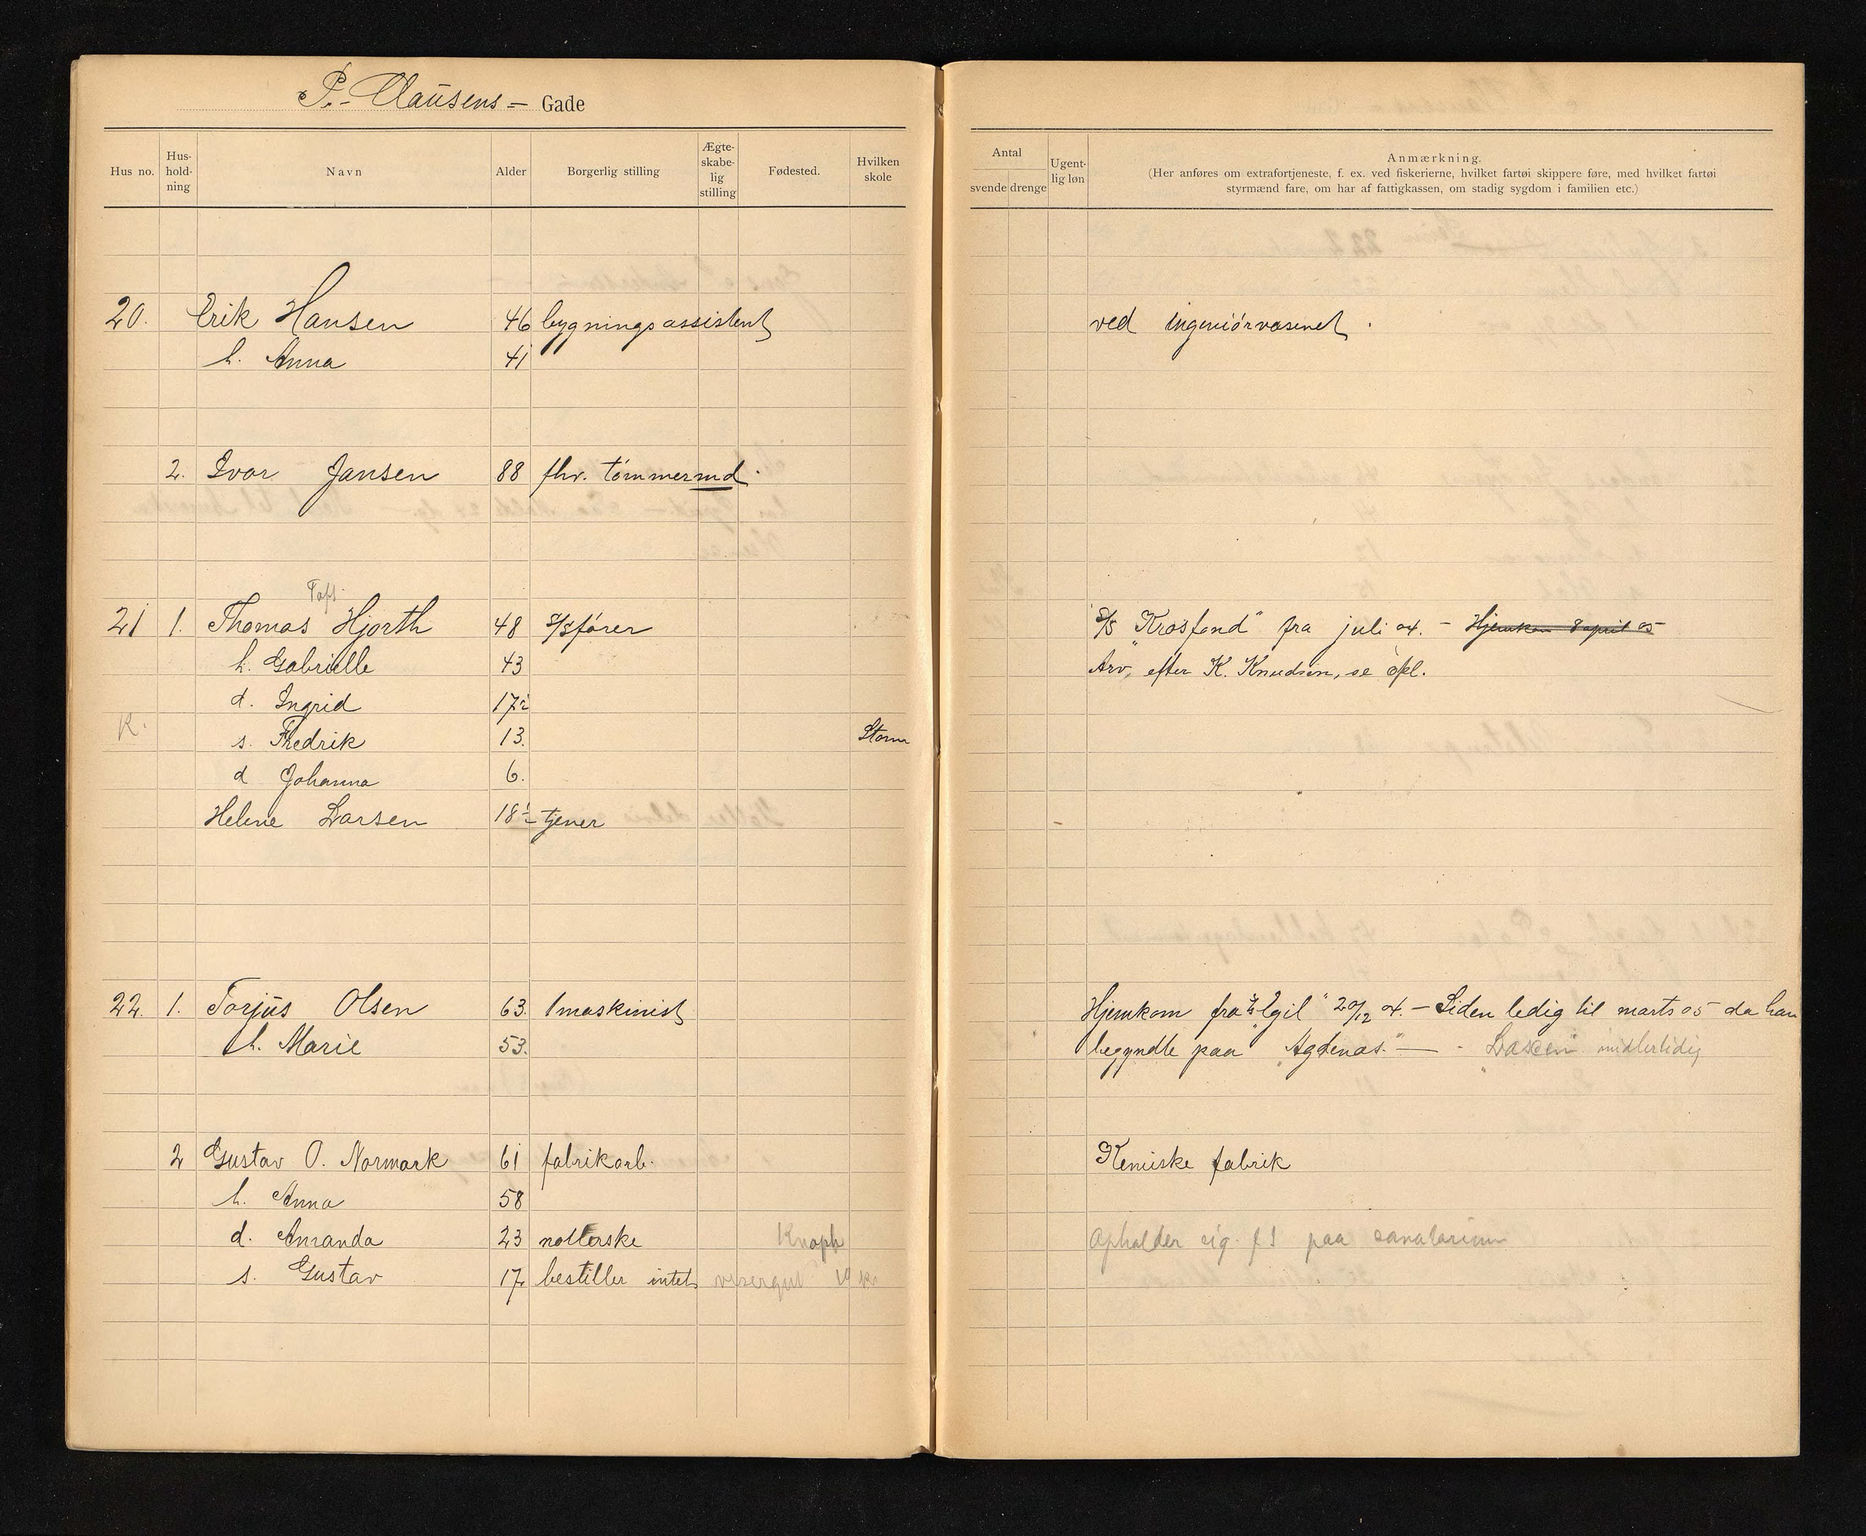 P. Clausens - Gade
Hus no. Hus-hold-ning Navn Alder Borgerlig stilling Ægte-skabe-lig stilling Fødested. Hvilken skole
Antal
svende drenge
Ugent-lig løn
Anmærkning.
(Her anføres om extrafortjeneste, f. ex. ved fiskerierne, hvilket fartøi skippere føre, med hvilket fartøi
styrmænd fare, om har af fattigkassen, om stadig sygdom i familien etc.)
20. Erik Hansen 46 bygningsassistent ved ingeniørvæsenet.
h. Anna 41
2. Ivar Jansen 88 fhv. tømmermd.
21 1. Thomas Hjorth 48 S/Sfører S/S "Krosfond" fra juli 04. - Hjemkom 8 april 05
h. Gabrielle 43 Arv, efter K. Knudsen, se
d. Ingrid 17½
K. s. Fredrik 13. Storm
d Johanna 6.
Helene Larsen 18½ tjener
22. 1. Torjus Olsen 63. 1 maskinist Hjemkom fra "Egil" 20/12 04. - Siden ledig til marts 05 da han
h. Marie 53. begyndte paa "Agdenæs." - midlertidig
2 Gustav O. Normark 61 fabrikarb. Kemiske fabrik
h. Anna 58
d. Amanda 23 Knoph Opholder sig paa sanatorium
s. Gustav 17 bestiller intet visergut